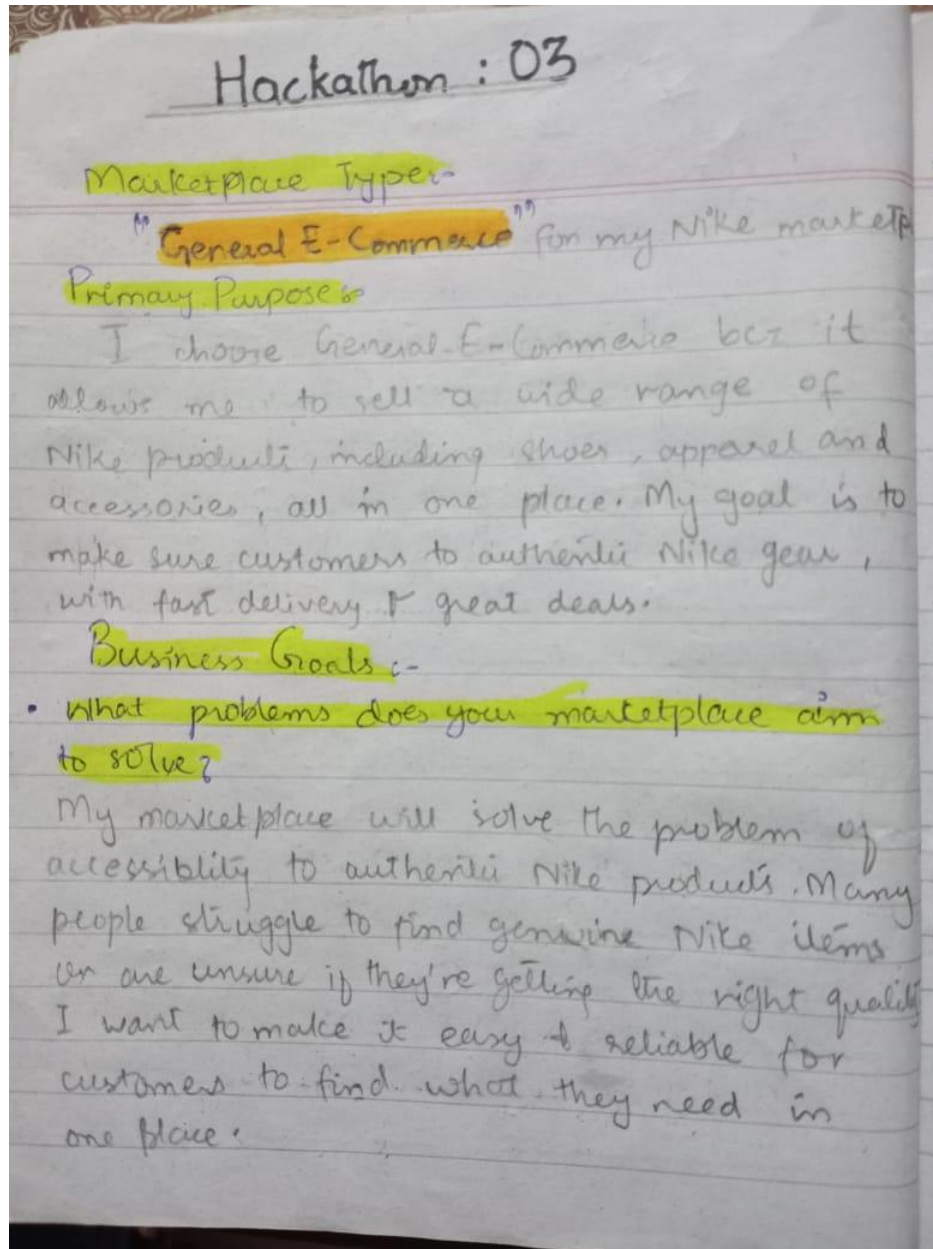 Hackathon : 03
Marketplace Type:-
"General E-Commerce" for my Nike marketp
Primary Purpose:-
I choose General-E-Commerce bcz it
allows me to sell a wide range of
Nike products, including shoes, apparel and
accessories, all in one place. My goal is to
make sure customers to authentic Nike gear,
with fast delivery & great deals.
Business Goals :-
• What problems does your marketplace aim
to solve?
My marketplace will solve the problem of
accessiblity to authentic Nike products. Many
people struggle to find genuine Nike items
or are unsure if they're getting the right quality
I want to make it easy & reliable for
customers to find what they need in
one place.